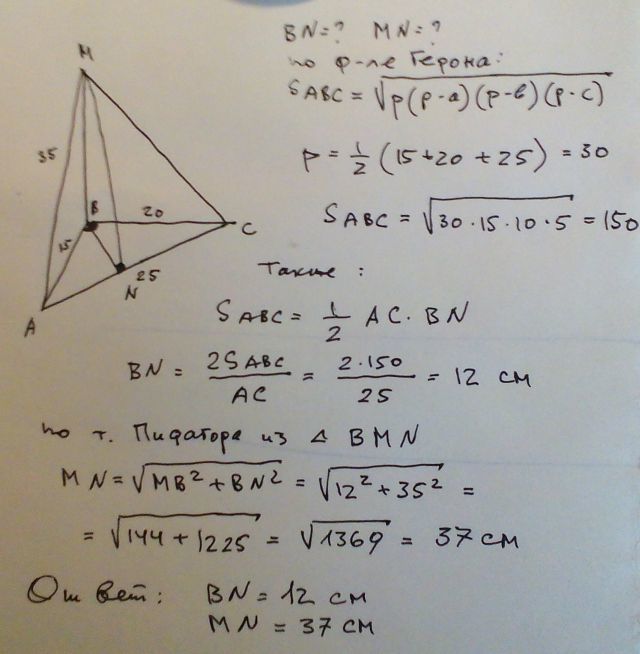 BN=? MN=?
по ф-ле Герона:
SABC = √p(p-a)(p-b)(p-c)
p = 1/2 (15+20+25) = 30
SABC = √30·15·10·5 = 150
M
35
B
20
C
15
25
N
A
Также:
SABC = 1/2 AC·BN
BN = 2SABC/AC = 2·150/25 = 12 см
по т. Пифагора из Δ BMN
MN = √MB²+BN² = √12²+35² =
= √144+1225 = √1369 = 37 см
Ответ: BN = 12 см
MN = 37 см